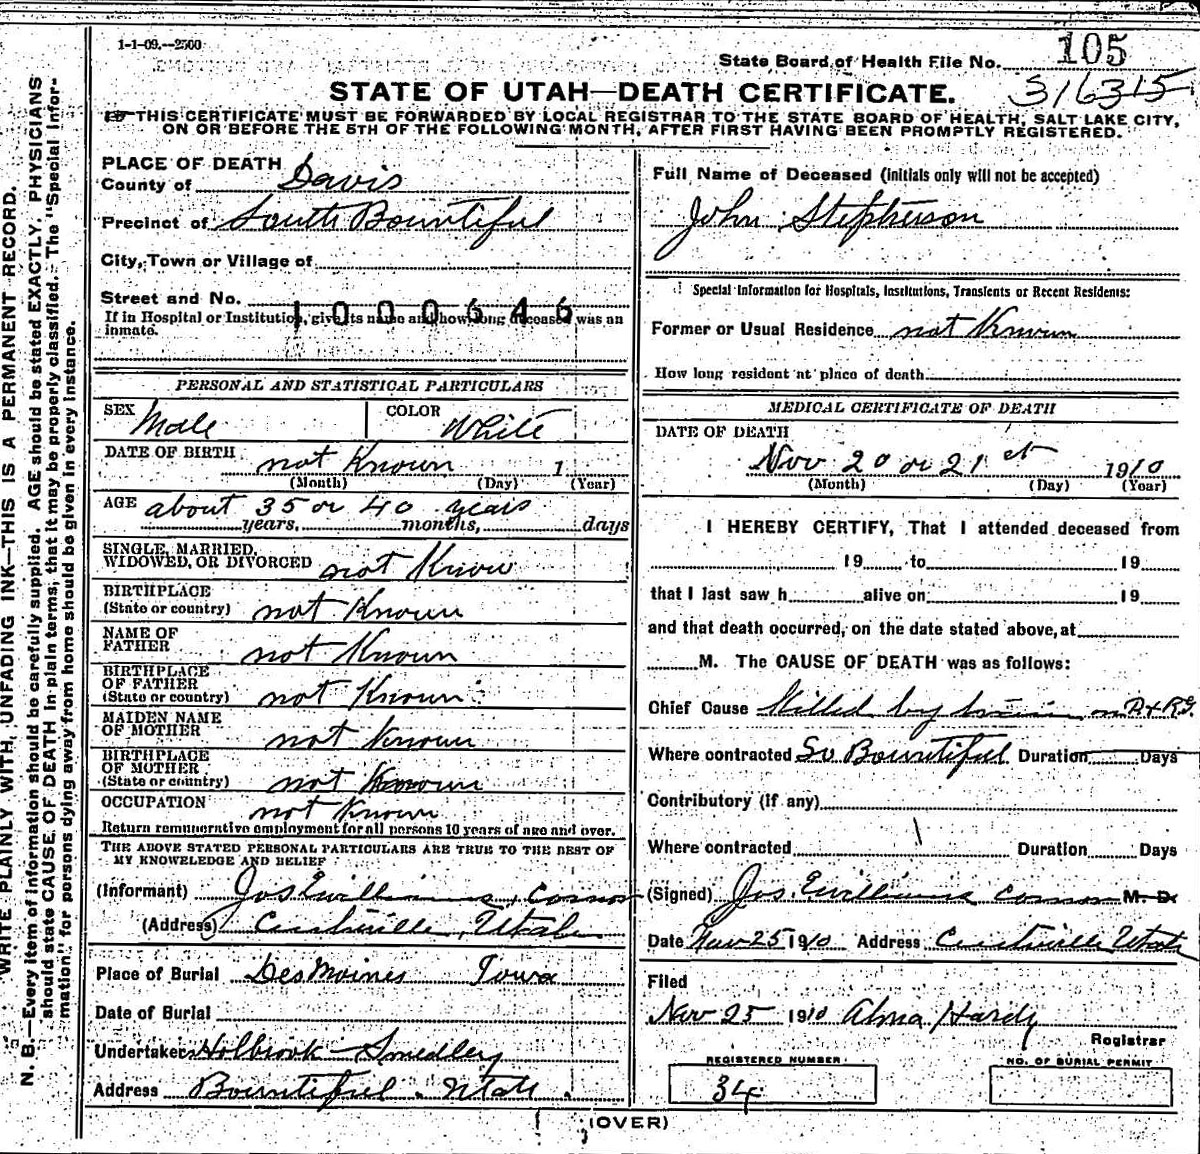 1-1-09.--2500
State Board of Health File No. 105
STATE OF UTAH—DEATH CERTIFICATE. 316315
THIS CERTIFICATE MUST BE FORWARDED BY LOCAL REGISTRAR TO THE STATE BOARD OF HEALTH, SALT LAKE CITY,
ON OR BEFORE THE 5TH OF THE FOLLOWING MONTH, AFTER FIRST HAVING BEEN PROMPTLY REGISTERED.
WRITE PLAINLY WITH UNFADING INK—THIS IS A PERMANENT RECORD.
N. B.—Every item of information should be carefully supplied. AGE should be stated EXACTLY. PHYSICIANS
should state CAUSE OF DEATH in plain terms, that it may be properly classified. The "Special Infor-
mation" for persons dying away from home should be given in every instance.
PLACE OF DEATH
County of Davis
Precinct of South Bountiful
City, Town or Village of
Street and No.
1000646
If in Hospital or Institution, give its name and how long deceased was an
inmate.
PERSONAL AND STATISTICAL PARTICULARS
SEX Male COLOR White
DATE OF BIRTH not Known 1
(Month) (Day) (Year)
AGE about 35 or 40 years
years, months, days
SINGLE, MARRIED,
WIDOWED, OR DIVORCED not Know
BIRTHPLACE
(State or country) not Known
NAME OF
FATHER not Known
BIRTHPLACE
OF FATHER
(State or country) not Known
MAIDEN NAME
OF MOTHER not Known
BIRTHPLACE
OF MOTHER
(State or country) not Known
OCCUPATION not Known
Return remunerative employment for all persons 10 years of age and over.
THE ABOVE STATED PERSONAL PARTICULARS ARE TRUE TO THE BEST OF
MY KNOWLEDGE AND BELIEF
(Informant) Jos E Williams, Coronor
(Address) Centerville, Utah
Place of Burial Des Moines Iowa
Date of Burial
Undertaker Holbrook - Smedley
Address Bountiful. Utah.
Full Name of Deceased (initials only will not be accepted)
John Stepherson
Special Information for Hospitals, Institutions, Transients or Recent Residents:
Former or Usual Residence not Known
How long resident at place of death
MEDICAL CERTIFICATE OF DEATH
DATE OF DEATH
Nov 20 or 21 st 1910
(Month) (Day) (Year)
I HEREBY CERTIFY, That I attended deceased from
19 to 19
that I last saw h alive on 19
and that death occurred, on the date stated above, at
M. The CAUSE OF DEATH was as follows:
Chief Cause Killed by train on D & R G
Where contracted So Bountiful Duration Days
Contributory (if any)
Where contracted Duration Days
(Signed) Jos. E Williams Coronor M. D.
Date Nov 25 1910 Address Centerville Utah
Filed
Nov 25 1910 Alma Hardy
Registrar
REGISTERED NUMBER
34
NO. OF BURIAL PERMIT
(OVER)